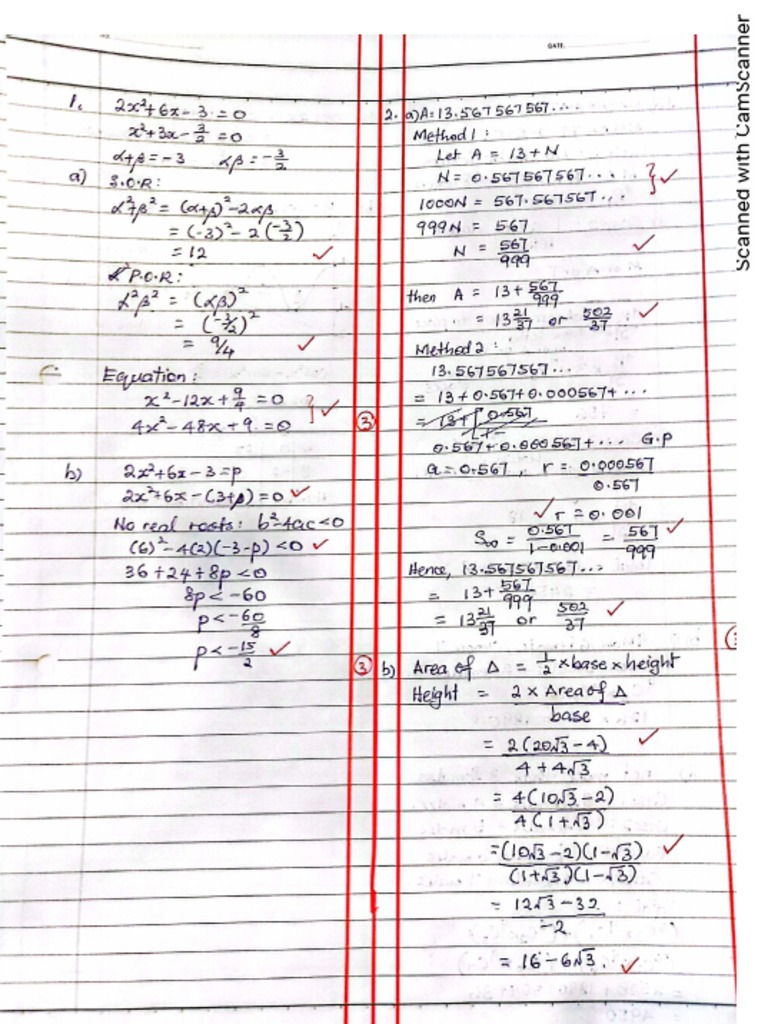 DATE
1. 2x²+6x-3=0
x²+3x-3/2=0
α+β=-3 αβ=-3/2
a) S.O.R:
α²+β² = (α+β)²-2αβ
= (-3)²-2(-3/2)
= 12 ✓
P.O.R:
α²β² = (αβ)²
= (-3/2)²
= 9/4 ✓
Equation:
x²-12x+9/4=0
4x²-48x+9=0 } ✓ ③
b) 2x²+6x-3=p
2x²+6x-(3+p)=0 ✓
No real roots: b²-4ac<0
(6)²-4(2)(-3-p)<0 ✓
36+24+8p<0
8p<-60
p<-60/8
p<-15/2 ✓ ③
2. a) A=13.567567567...
Method 1:
Let A = 13+N
N = 0.567567567...
1000N = 567.567567... } ✓
999N = 567
N = 567/999 ✓
then A = 13+567/999
= 13 21/37 or 502/37 ✓
Method 2:
13.567567567...
= 13+0.567+0.000567+...
0.567+0.000567+... G.P
a=0.567, r = 0.000567/0.567
✓ r=0.001
S∞ = 0.567/1-0.001 = 567/999 ✓
Hence, 13.567567567...
= 13+567/999
= 13 21/37 or 502/37 ✓
b) Area of Δ = 1/2×base×height
Height = 2×Area of Δ/base
= 2(20√3-4)/4+4√3 ✓
= 4(10√3-2)/4(1+√3)
= (10√3-2)(1-√3)/(1+√3)(1-√3) ✓
= 12√3-32/-2
= 16-6√3. ✓
Scanned with CamScanner